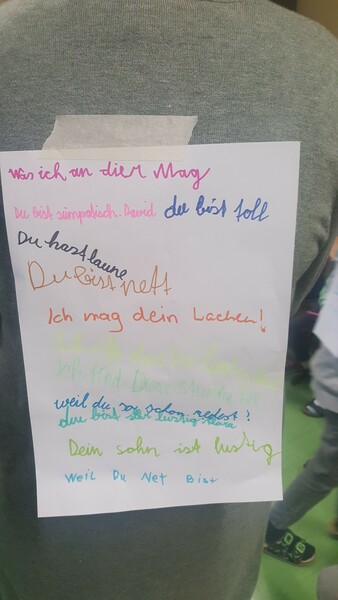 Was ich an dier Mag
Du bist simpatisch. David du bist toll
Du hast laune
Du bist nett
Ich mag dein Lachen!
Ich find
weil du so schön redest?
du bist ser lustig
Dein sohn ist lustig
Weil Du Net Bist